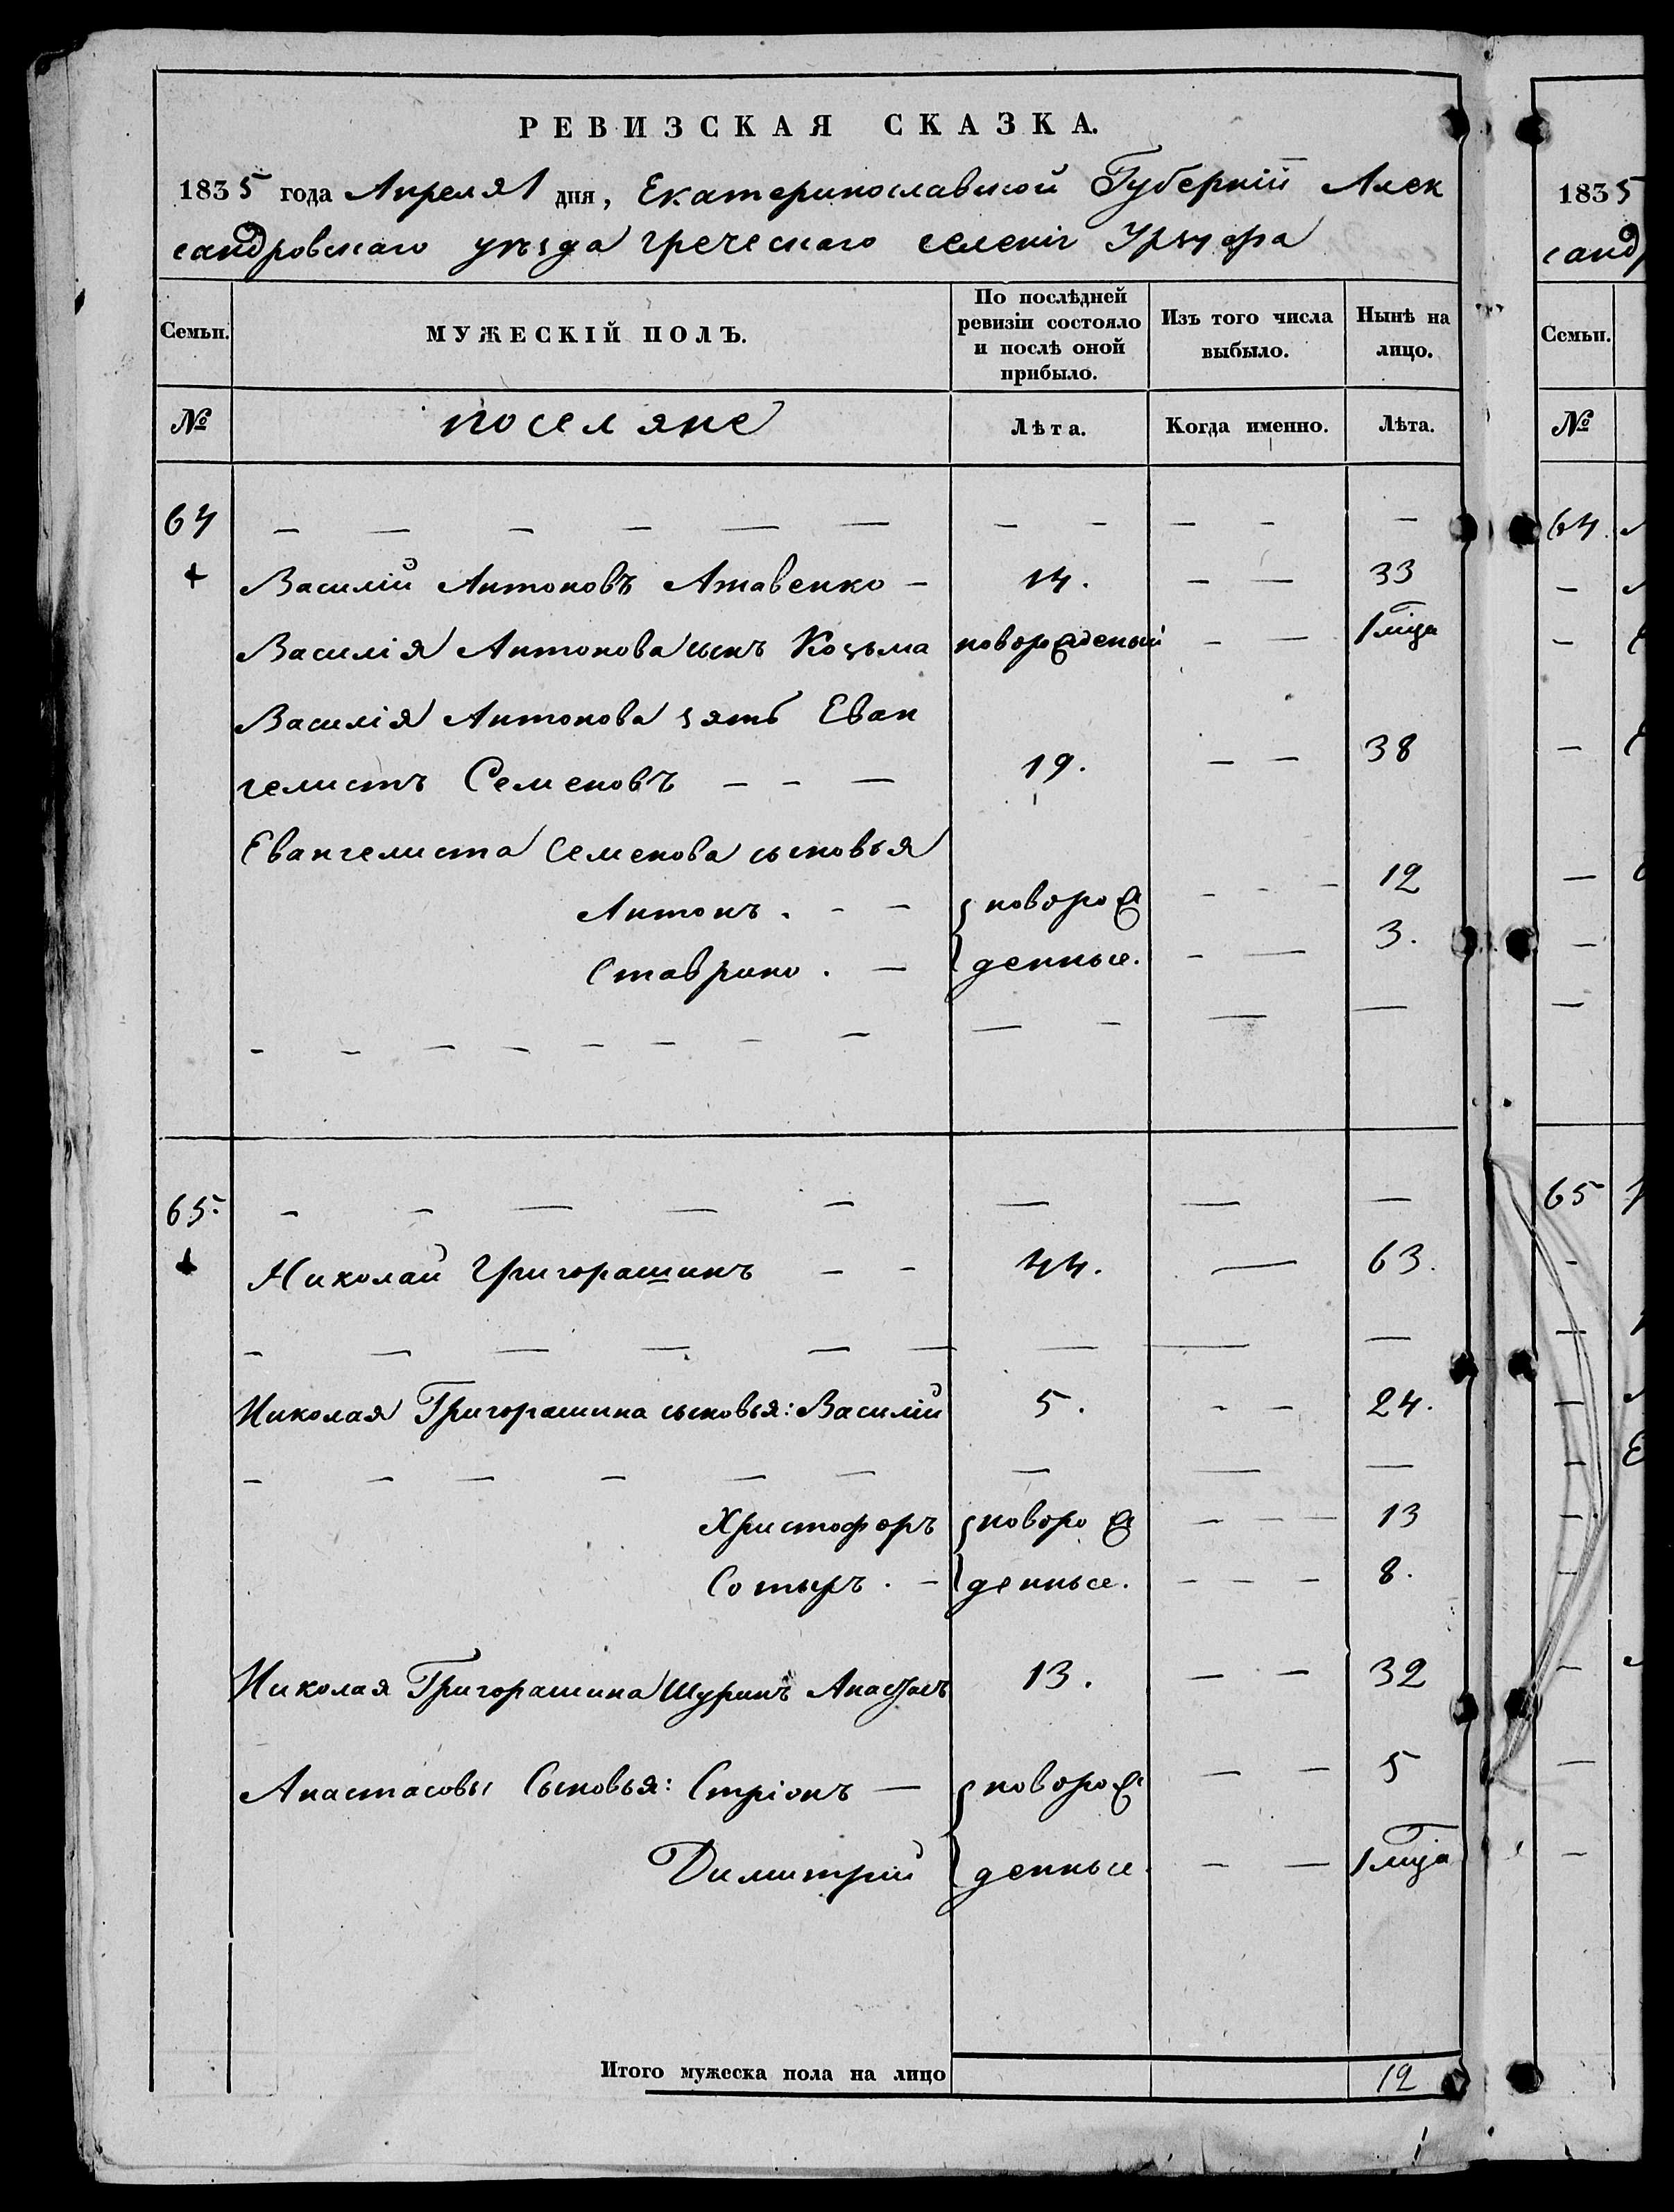 РЕВИЗСКАЯ СКАЗКА.
1835 года Апреля 1 дня, Екатеринославской Губерніи Алек
сандровскаго уѣзда греческаго селенія Урзуфа
Семьи. МУЖЕСКІЙ ПОЛЪ. По послѣдней ревизіи состояло и послѣ оной прибыло. Изъ того числа выбыло. Нынѣ на лицо.
№ поселяне Лѣта. Когда именно. Лѣта.
64 — — — — — — — — — — —
Василій Антоновъ Атавенко — 14. — — 33
Василія Антонова сынъ Козьма новорожденый — — 1 мца
Василія Антонова зять Еван
гелистъ Семеновъ — — — 19. — — 38
Евангелиста Семенова сыновья
Антонъ. — — новорож — — — 12
Ставрино. — денные. — — 3.
— — — — — — — — — — — —
65. — — — — — — — —
Николай Григорашинъ — — 44. — 63.
— — — — — — — — —
Николая Григорашина сыновья: Василій 5. — — 24.
— — — — — — — — —
Христофоръ новорож — — — 13
Сотыръ. — денные. — — — 8.
Николая Григорашина шуринъ Анастасъ 13. — — 32
Анастасовы Сыновья: Стріонъ — новорож — — 5
Димитрій денные — — 1 мца
Итого мужеска пола на лицо 12
1835
санд
Семьи.
№
64.
65